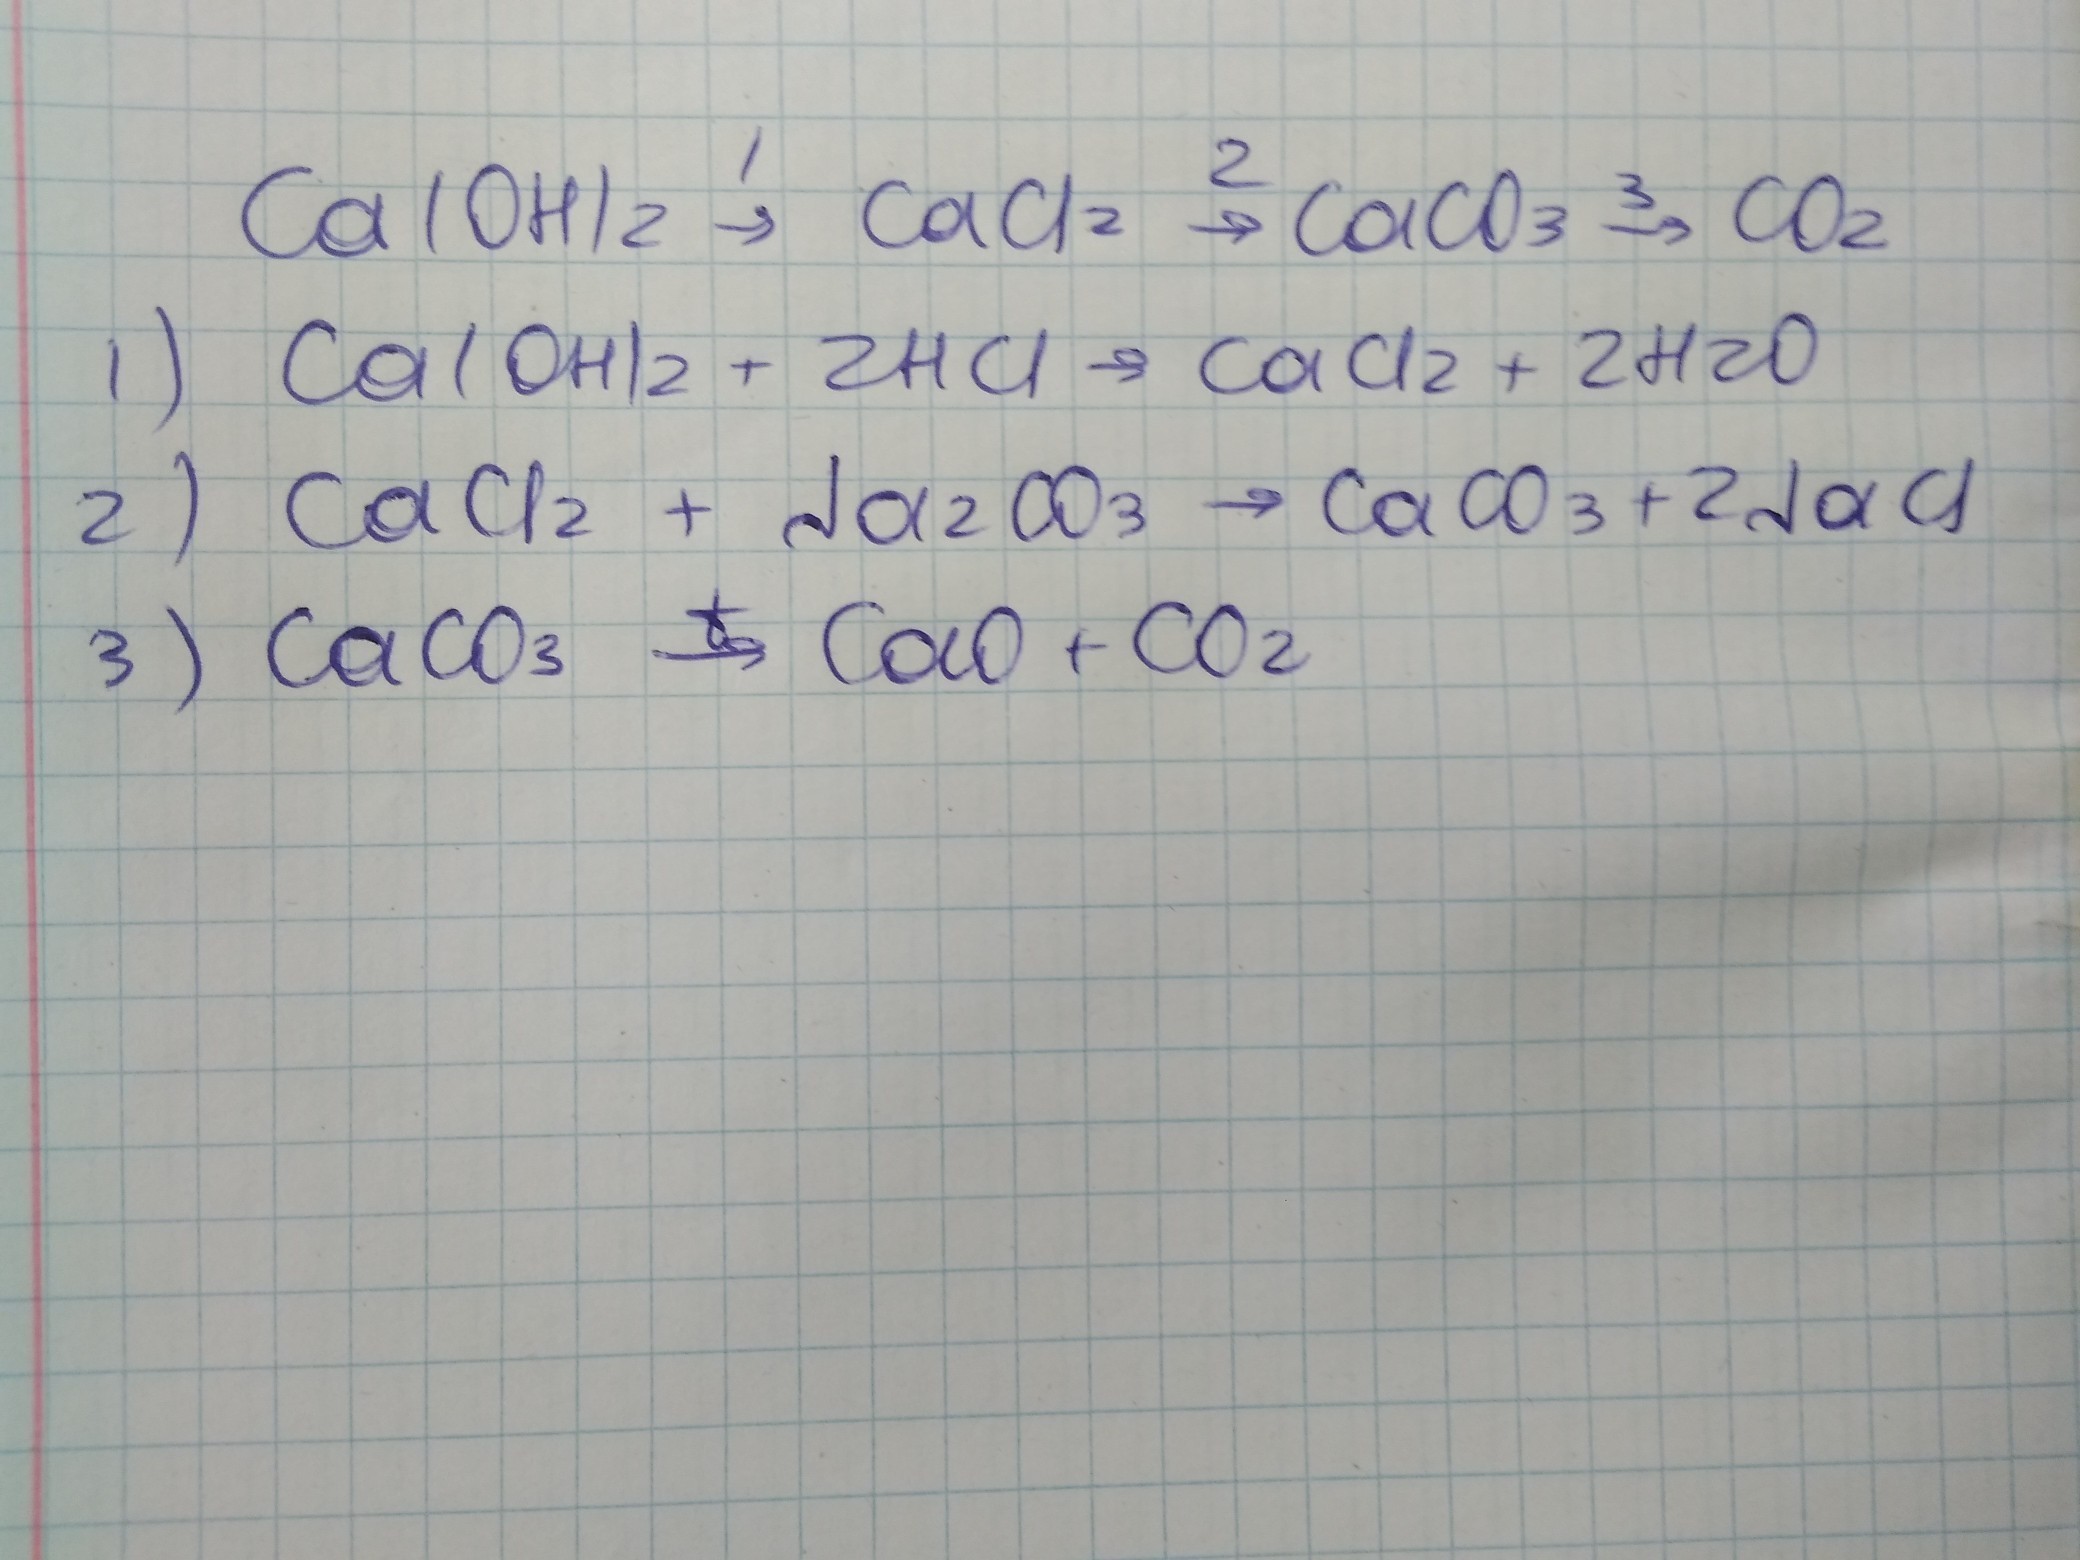 Ca(OH)2 1→ CaCl2 2→ CaCO3 3→ CO2
1) Ca(OH)2 + 2HCl → CaCl2 + 2H2O
2) CaCl2 + Na2CO3 → CaCO3 + 2NaCl
3) CaCO3 t→ CaO + CO2